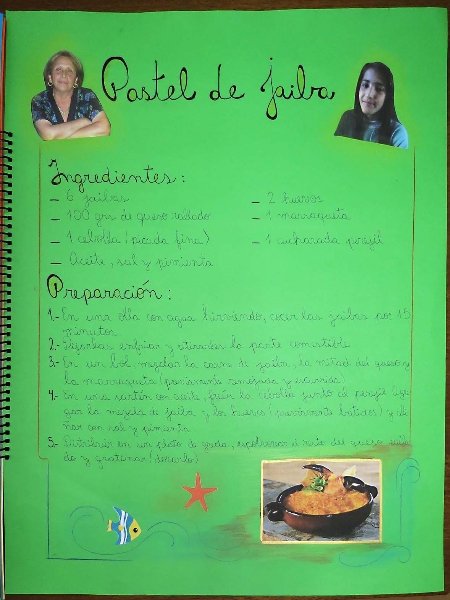 Pastel de jaiba
Ingredientes:
– 6 jaibas
– 100 grs de queso rallado
– 1 cebolla (picada fina)
– Aceite, sal y pimienta
– 2 huevos
– 1 marraqueta
– 1 cucharada perejil
Preparación:
1.- En una olla con agua hirviendo, cocer las jaibas por 15
minutos.
2.- Dejarlas enfriar y extraerles la parte comestible.
3.- En un bol mezclar la carne de jaiba, la mitad del queso y
la marraqueta (previamente remojada y
4.- En una sartén con aceite, freír la cebolla junto al perejil
gar la mezcla de jaiba y los huevos (previamente batidos) y
ñar con sal y pimienta.
5.- Distribuir en un plato de greda, espolvorear el resto del queso
do y gratinar